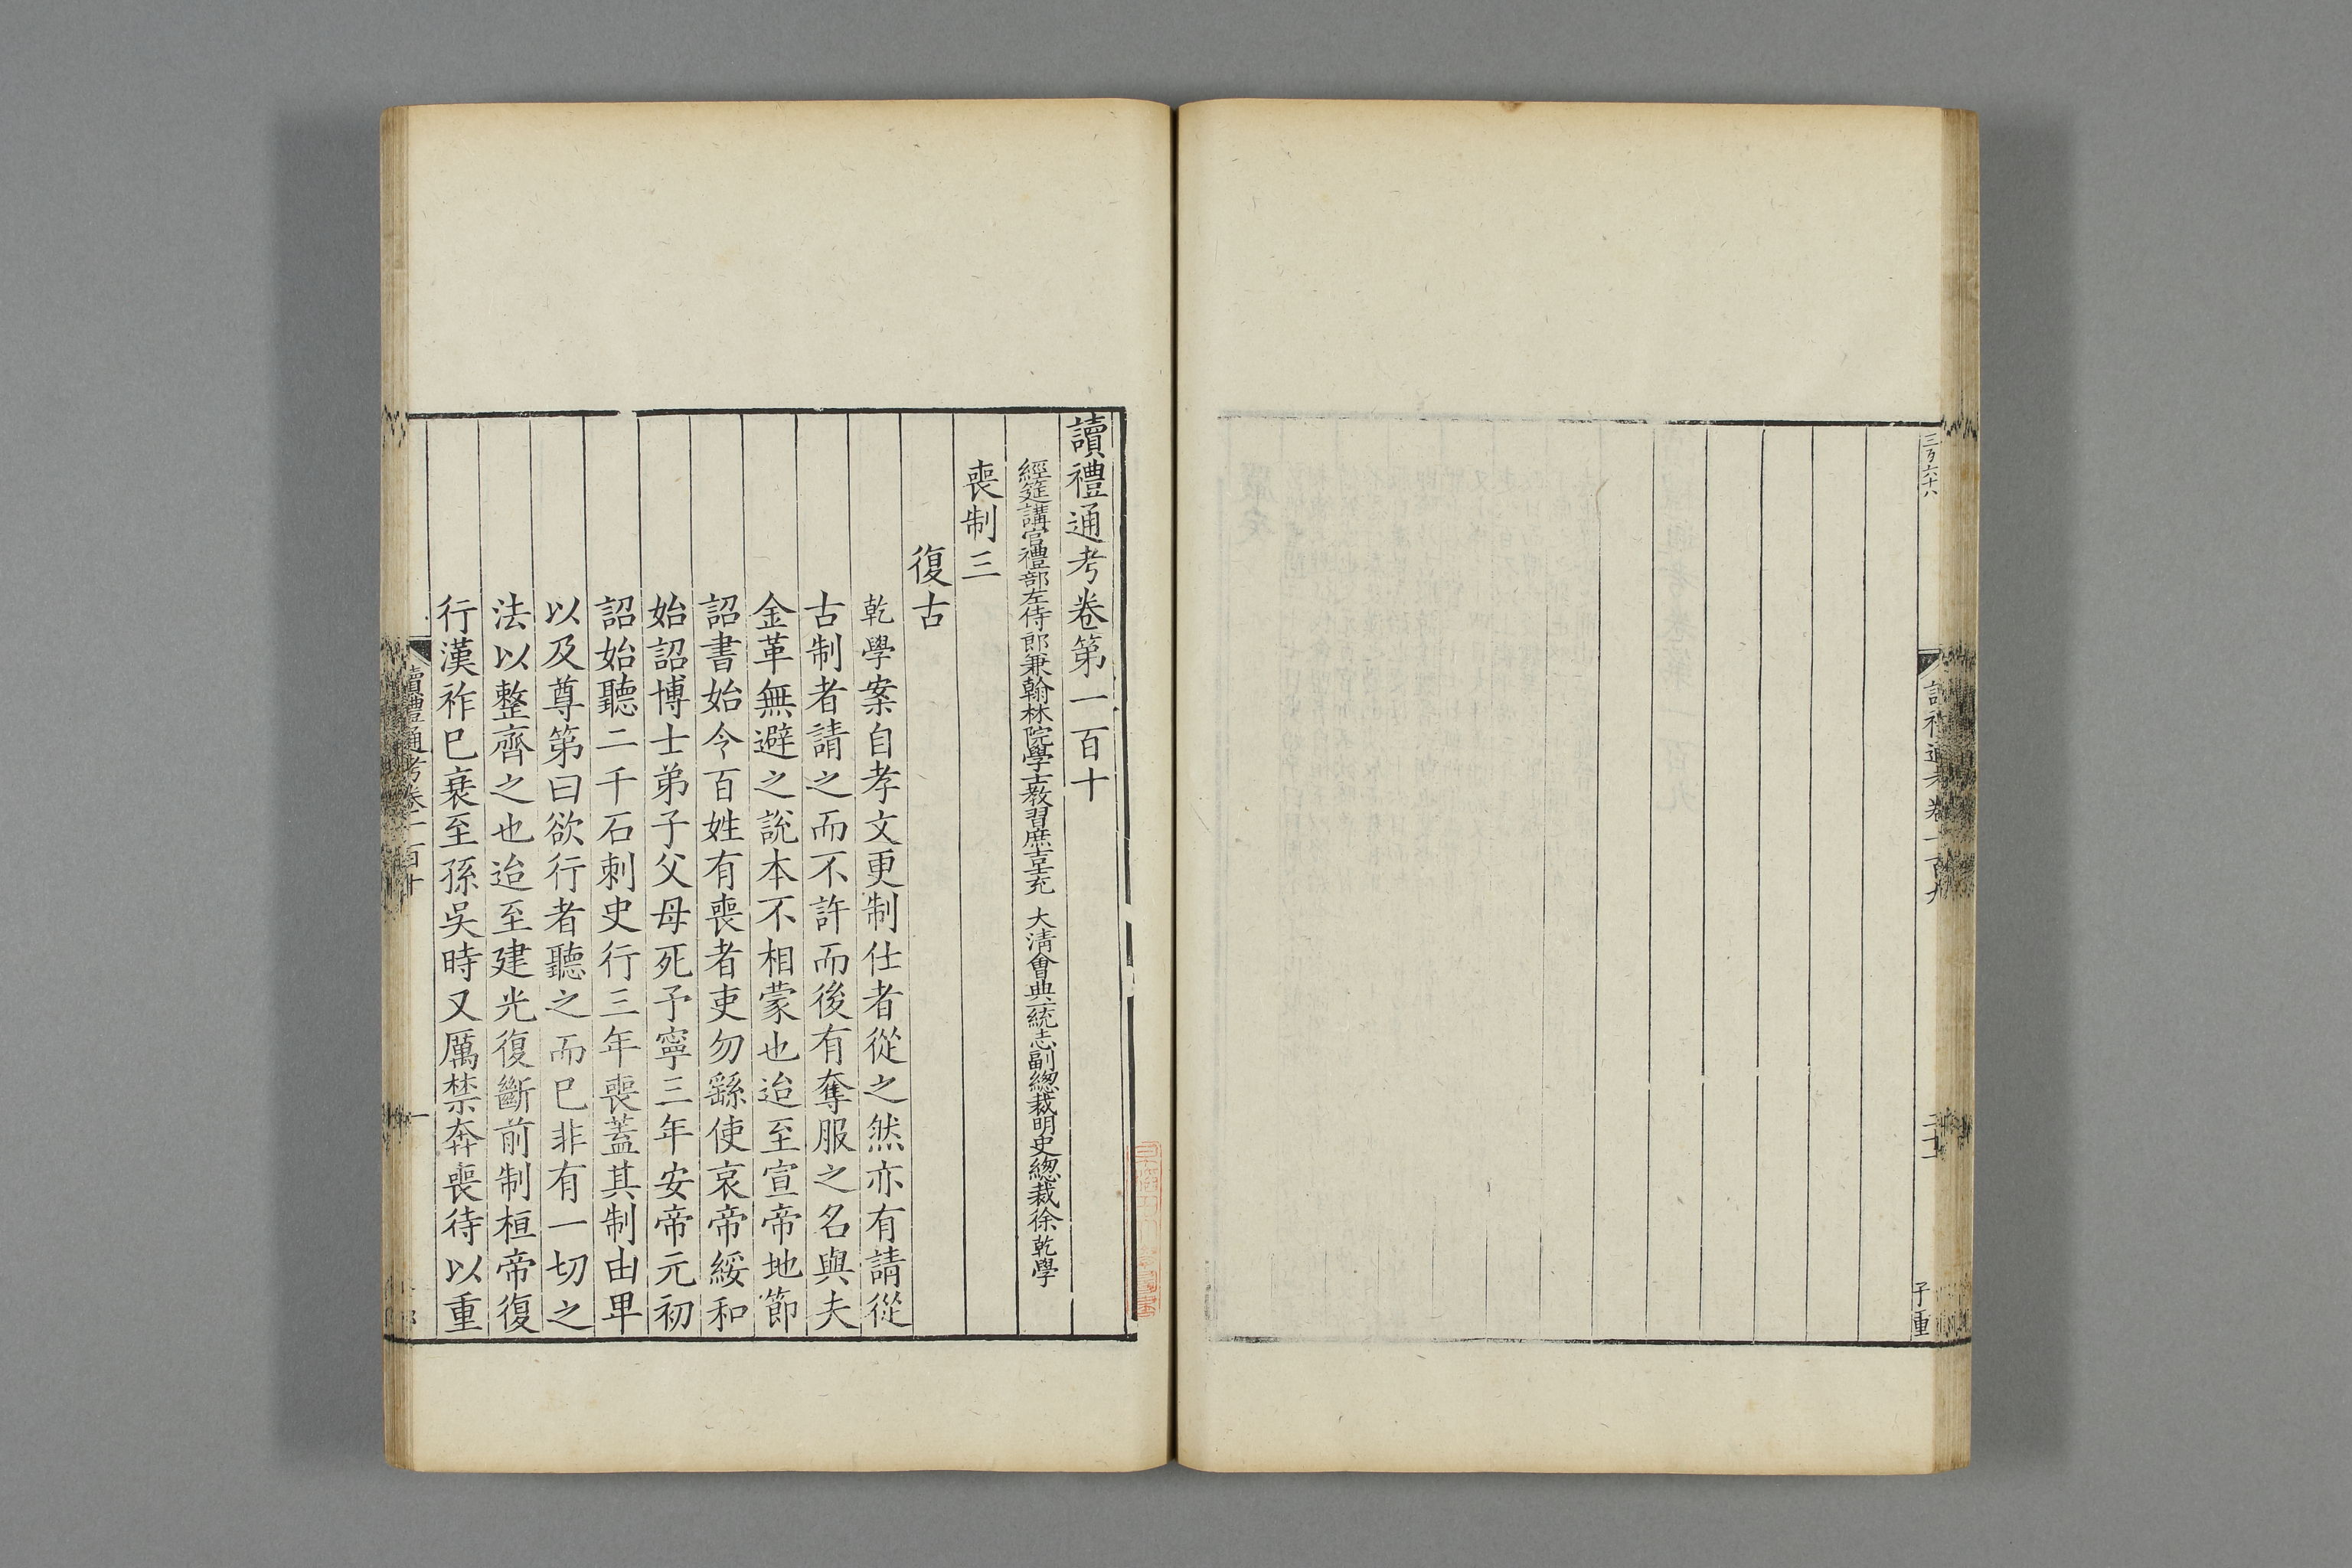 三百六十八
讀禮通考卷一百九
二十一
子重
讀禮通考卷第一百十
經筵講官禮部左侍郎兼翰林院學士教習庶吉士充 大清會典一統志副總裁明史總裁徐乾學
喪制三
復古
乾學案自孝文更制仕者從之然亦有請從
古制者請之而不許而後有奪服之名與夫
金革無避之說本不相蒙也迨至宣帝地節
詔書始令百姓有喪者吏勿繇使哀帝綏和
始詔博士弟子父母死予寧三年安帝元初
詔始聽二千石刺史行三年喪蓋其制由卑
以及尊第曰欲行者聽之而已非有一切之
法以整齊之也迨至建光復斷前制桓帝復
行漢祚已衰至孫吳時又厲禁奔喪待以重
讀禮通考卷一百十
一